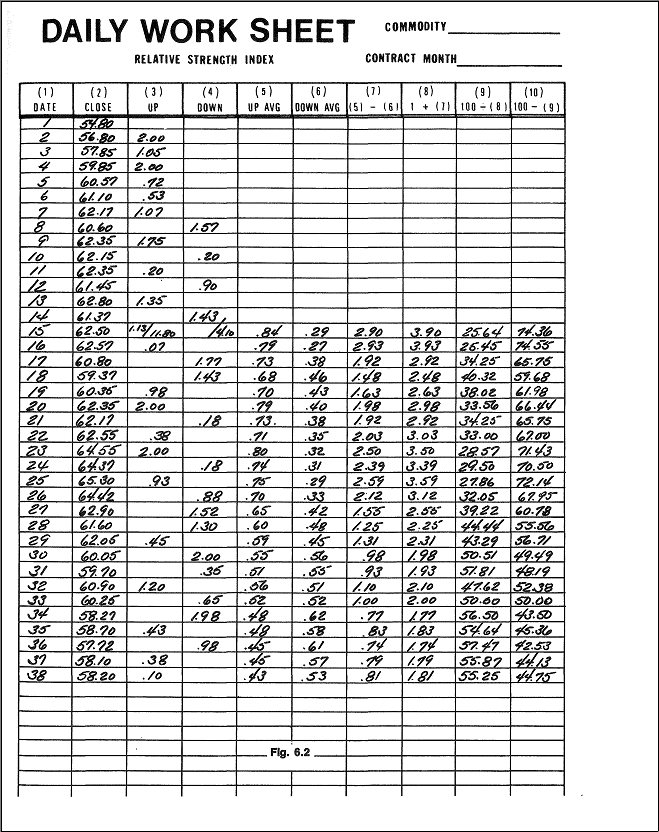 DAILY WORK SHEET COMMODITY
RELATIVE STRENGTH INDEX CONTRACT MONTH
(1) (2) (3) (4) (5) (6) (7) (8) (9) (10)
DATE CLOSE UP DOWN UP AVG DOWN AVG (5) - (6) 1 + (7) 100-(8) 100-(9)
1 54.80
2 56.80 2.00
3 57.85 1.05
4 59.85 2.00
5 60.57 .72
6 61.10 .53
7 62.17 1.07
8 60.60 1.57
9 62.35 1.75
10 62.15 .20
11 62.35 .20
12 61.45 .90
13 62.80 1.35
14 61.37 1.43
15 62.50 1.13/11.80 /4.10 .84 .29 2.90 3.90 25.64 74.36
16 62.57 .07 .79 .27 2.93 3.93 25.45 74.55
17 60.80 1.77 .73 .38 1.92 2.92 34.25 65.75
18 59.37 1.43 .68 .46 1.48 2.48 40.32 59.68
19 60.35 .98 .70 .43 1.63 2.63 38.02 61.98
20 62.35 2.00 .79 .40 1.98 2.98 33.56 66.44
21 62.17 .18 .73 .38 1.92 2.92 34.25 65.75
22 62.55 .38 .71 .35 2.03 3.03 33.00 67.00
23 64.55 2.00 .80 .32 2.50 3.50 28.57 71.43
24 64.37 .18 .74 .31 2.39 3.39 29.50 70.50
25 65.30 .93 .75 .29 2.59 3.59 27.86 72.14
26 64.42 .88 .70 .33 2.12 3.12 32.05 67.95
27 62.90 1.52 .65 .42 1.55 2.55 39.22 60.78
28 61.60 1.30 .60 .48 1.25 2.25 44.44 55.56
29 62.05 .45 .59 .45 1.31 2.31 43.29 56.71
30 60.05 2.00 .55 .56 .98 1.98 50.51 49.49
31 59.70 .35 .51 .55 .93 1.93 51.81 48.19
32 60.90 1.20 .56 .51 1.10 2.10 47.62 52.38
33 60.25 .65 .52 .52 1.00 2.00 50.00 50.00
34 58.27 1.98 .48 .62 .77 1.77 56.50 43.50
35 58.70 .43 .48 .58 .83 1.83 54.64 45.36
36 57.72 .98 .45 .61 .74 1.74 57.47 42.53
37 58.10 .38 .45 .57 .79 1.79 55.87 44.13
38 58.20 .10 .43 .53 .81 1.81 55.25 44.75
Fig. 6.2